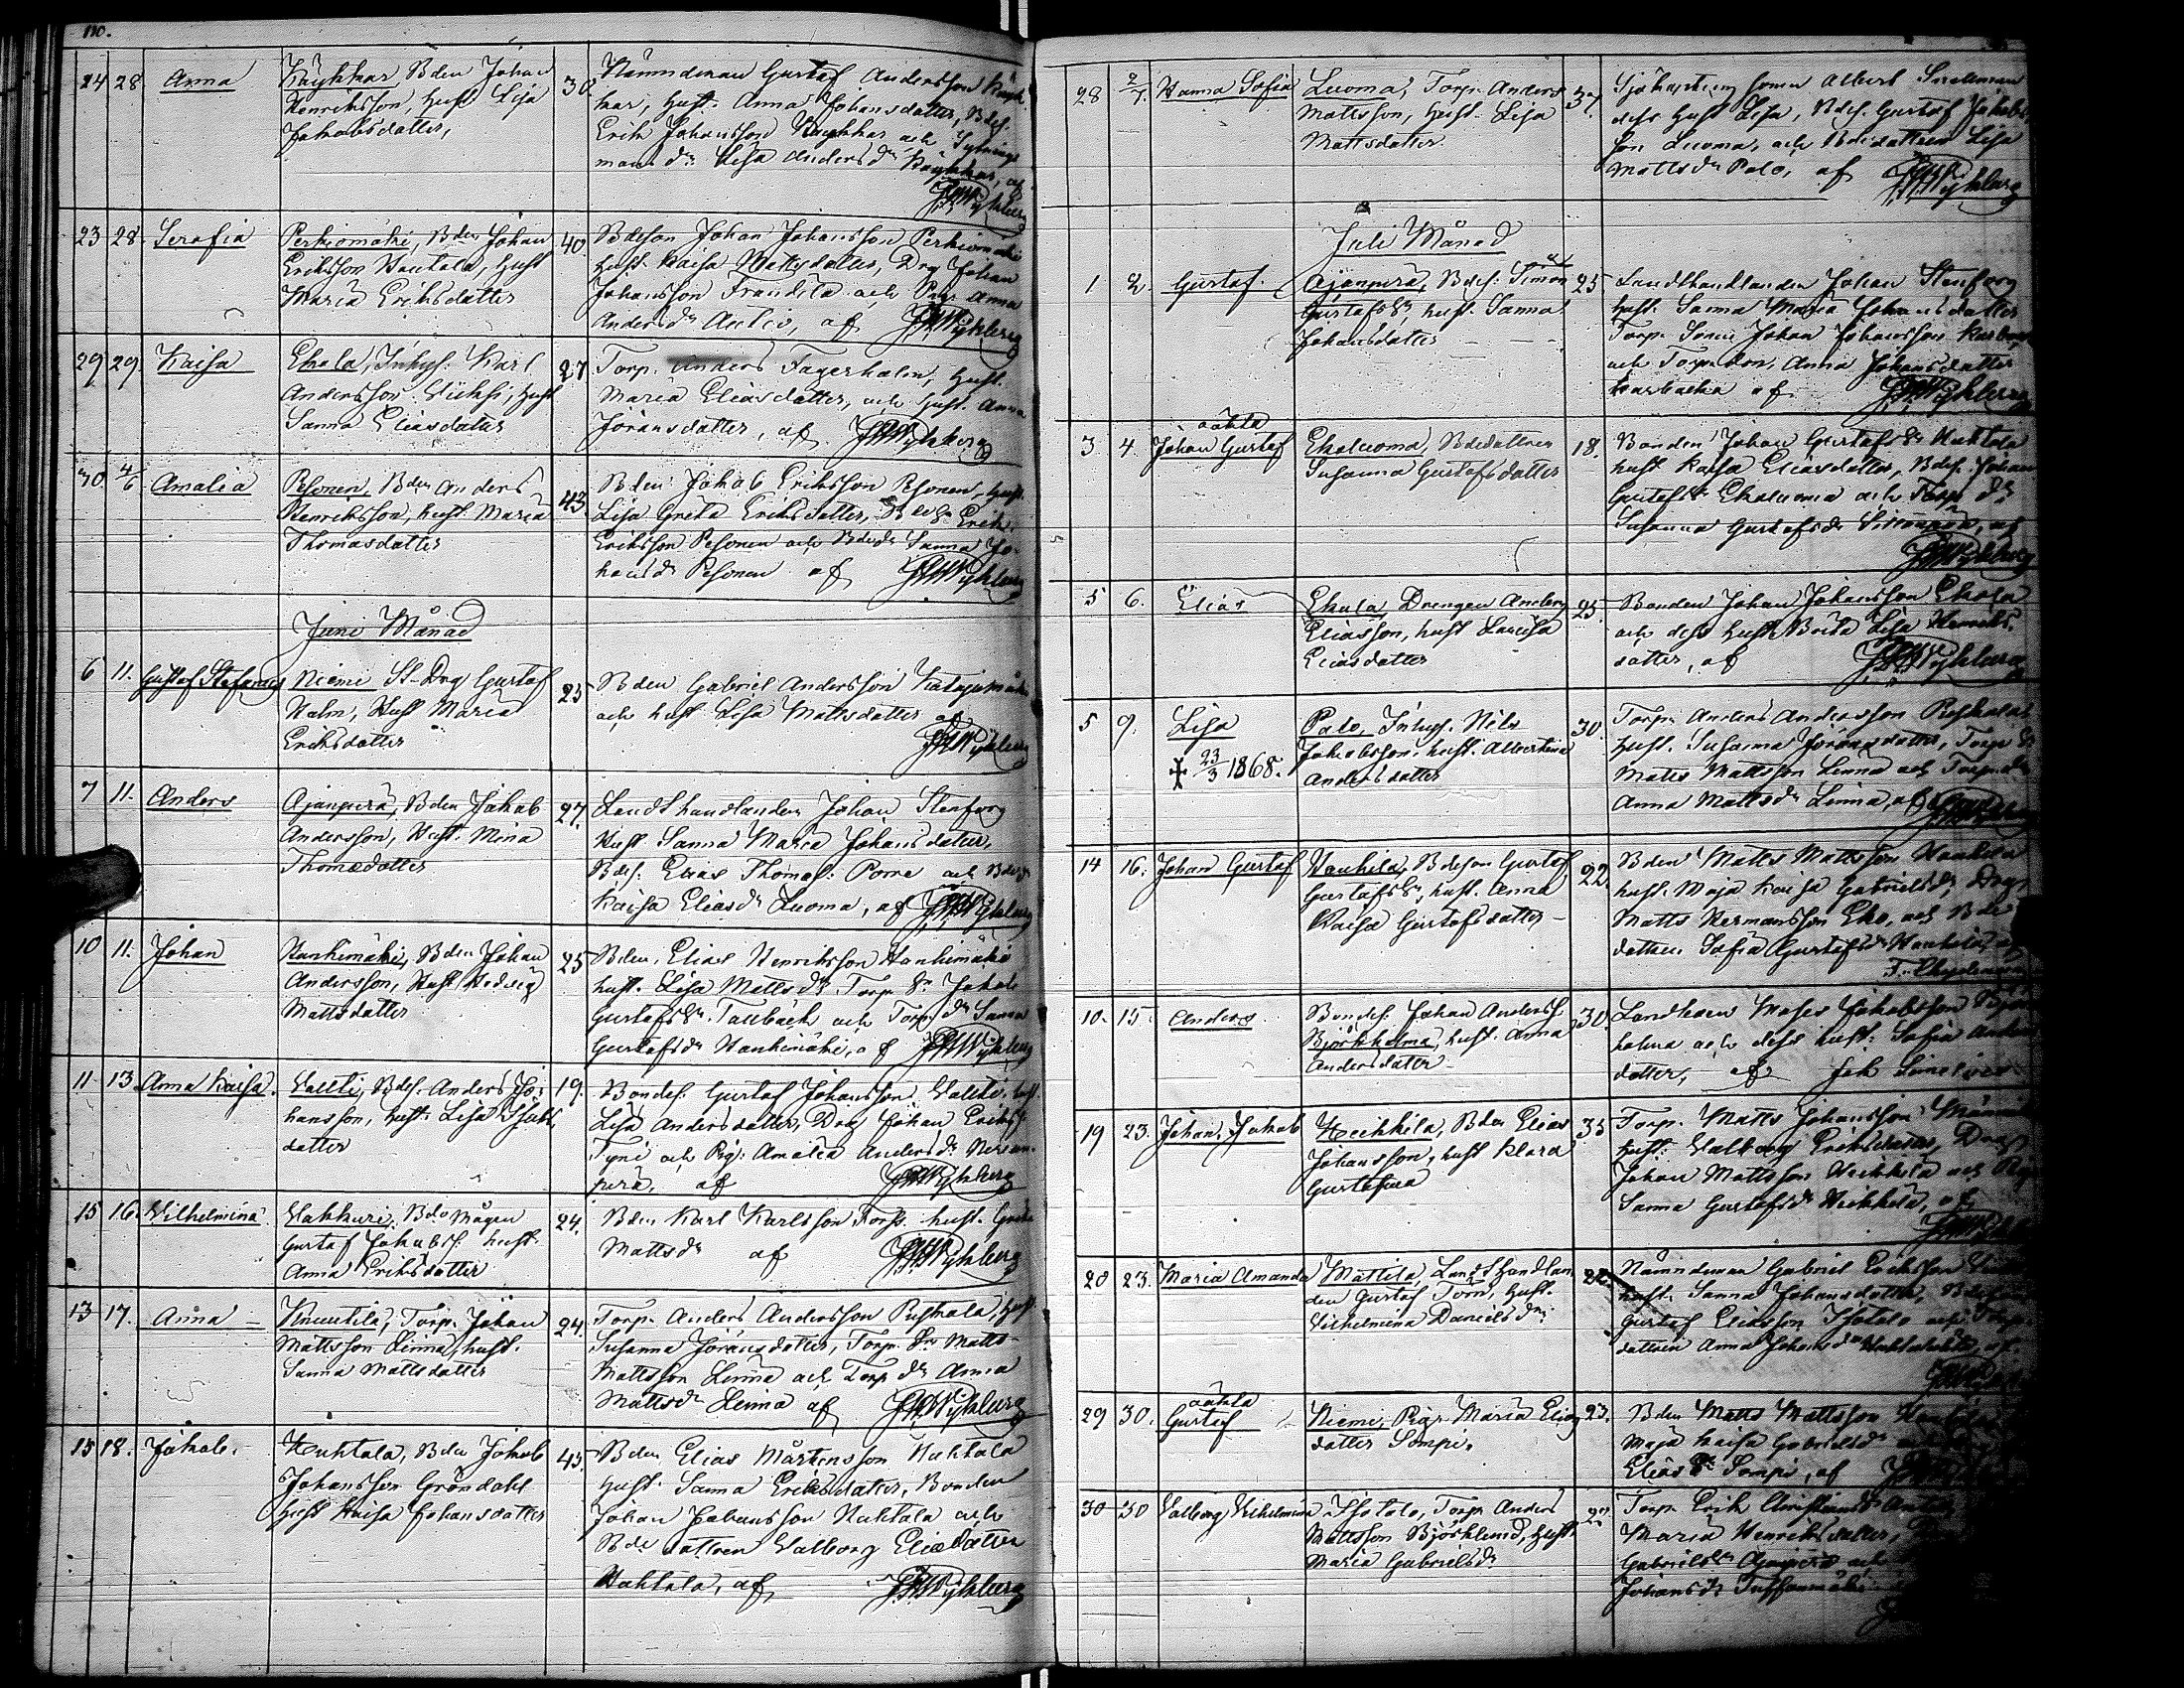 110.
24 28 Anna Käykkar, Bden Johan 30.
Henriksson, hust. Lisa
Jakobsdotter,
Nämndeman Gustaf Andersson Käyk-
kar, hust. Anna Johansdotter, Bdes.
Erik Johansson Käykkar och
mans dr Lisa Anders dr Käykkar, af
23 28. Serafia Perkiomäki, Bden Johan 40.
Eriksson Hautala, hust
Maria Eriksdotter
Bdeson Johan Johansson Perkiomäki
hust. Kaisa Mattsdotter, Drg Johan
Johansson Frandila och Pig. Anna
Anders dr Antio, af
29 29. Kaisa Ekola, Inhys. Karl 27
Andersson, hust
Sanna Eliasdotter
Torp. Anders Fagerholm, hust.
Maria Eliasdotter, och hust. Anna
Göransdotter, af
30. 4/6 Amalia Pesonen, Bden Anders 43.
Henriksson, hust. Maria
Thomasdotter
Bden Jakob Eriksson Pesonen, hust.
Lisa Greta Eriksdotter, Erik
Eriksson Pesonen och Bde dr Sanna Jo-
hans dr Pesonen af
Juni Månad
6 11. Gustaf Stefanus Niemi St. Drg Gustaf 25
Malm, Hust Maria
Eriksdotter
Bden Gabriel Andersson Katajamäki
och hust. Lisa Mattsdotter af
7 11. Anders Ajanperä, Bden Jakob 27.
Andersson, Hust. Mina
Thomædotter
Landthandlanden Johan Stenfors
Hust Sanna Maria Johansdotter,
Bdes. Elias Thomas. Porre och Bde dr
Kaisa Elias dr Luoma, af
10 11. Johan Hankimäki, Bden Johan 25
Andersson, Hust Hedvig
Mattsdotter
Bden. Elias Henriksson Hankimäki
hust. Lisa Matts dr Torp. Sn Jakob
Gustafs Sn Tallbäck och Torp. dr Sanna
Gustafs dr Hankimäki, af
11 13. Anna Kaisa. Valtti, Bdes. Anders Jo- 19.
hansson, hust. Lisa Isaks
dotter
Bondes. Gustaf Johansson Valtti, hust
Lisa Andersdotter, Drg Johan Eriks
Tyni och Pig. Amalia Anders dr Neiran-
perä, af
15 16. Vilhelmina Vakkuri, Bde Mågen 24.
Gustaf Jakobs. hust.
Anna Eriksdotter
Bden Karl Karlsson Torp. hust. Greta
Matts dr af
13 17. Anna Knuutila, Torp. Johan 24.
Mattsson Linna, hust.
Sanna Mattsdotter
Torp. Anders Andersson Puskala, hust.
Susanna Göransdotter, Torp. Sn Matts
Mattsson Linna och Torp dr Anna
Matts dr Linna af
15 18. Jakob. Huhtala, Bden Jakob 45.
Johansson Gröndahl
hust Kaisa Johansdotter
Bden Elias Mårtensson Huhtala
hust. Sanna Eriksdotter, Bonden
Johan Johansson Huhtala och
Bde dottren Valborg Eliasdotter
Huhtala, af
28 2/7. Hanna Sofia Luoma, Torp. Anders 37.
Mattsson, hust. Lisa
Mattsdotter.
Sjökaptens sonen Albert
dess hust Lisa, Bdes. Gustaf Jakobs-
son Luoma, och Bdedottren Lisa
Matts dr Palo, af
Juli Månad
1 2. Gustaf. Ajanperä, Bdes. Simon 25
Gustafs Sn, hust. Sanna
Johansdotter
Landthandlanden Johan Stenfors
hust. Sanna Maria Johansdotter
Torp. Sonen Johan Johansson
och Torp. don, Anna Johansdotter
Karbacka af
oäkta
3 4. Johan Gustaf Ekoluoma, Bdedottren 18.
Susanna Gustafsdotter
Bonden Johan Gustafs Sn Huhtala
hust Kaisa Eliasdotter, Bdes. Johan
Gustafs Sn Ekoluoma och Torp dr
Susanna Gustafs dr af
5 6. Elias Ekola, Drengen Anders 25.
Eliasson, hust Lovisa
Eliasdotter
Bonden Johan Johansson Ekola
och dess hust Brita Lisa Henriks-
dotter, af
5 9. Lisa Palo, Inhys. Nils 30.
Jakobsson, hust. Albertina
Andersdotter
✝ 23/3 1868.
Torp. Anders Andersson Puskala
hust. Susanna Göransdotter, Torp Sn
Matts Mattsson Linna och Torp dr
Anna Matts dr Linna, af
14 16. Johan Gustaf Hauhila, Bdeson Gustaf 22.
Gustafs Sn, hust. Anna
Kaisa Gustafsdotter
Bden Matts Mattsson Hauhila
hust. Maja Kaisa Gabriels dr Drg
Matts Hermansson Eko, och Bde
dottren Sofia Gustafs dr Hauhila, af
10. 15. Anders Bondes. Johan Anders 30.
Björkholma, hust. Anna
Andersdotter
Landbon Moses Jakobsson Björk
holma och dess hust. Sofia Anders
dotter, af Joh Simelius
19 23. Johan Jakob Heikkilä, Bden Elias 35
Johansson, hust Klara
Gustafva
Torp. Matts Johansson
hust. Valborg Eriksdotter, Drg
Johan Mattsson Heikkilä och Pig
Sanna Gustafs dr Heikkilä, af
20 23. Maria Amanda Mattila, Landthandlan- 22.
den Gustaf Torn, hust.
Vilhelmina Daniels dr
Nämndeman Gabriel Eriksson
hust. Sanna Johansdotter,
Gustaf Eliasson Isotalo och
dottren Anna Johans dr af
oäkta
29 30. Gustaf Niemi, Pig. Maria Elias 23.
dotter Sompi.
Bden Matts Mattsson
Maja Kaisa Gabriels dr
Elias Sn Sompi, af
30 30 Valborg Vilhelmina Isotalo, Torp. Anders
Mattsson Björklund, hust
Maria Gabriels dr
Torp. Erik
Maria Henriksdotter,
Gabriels Sn Ajanperä och
Johans dr